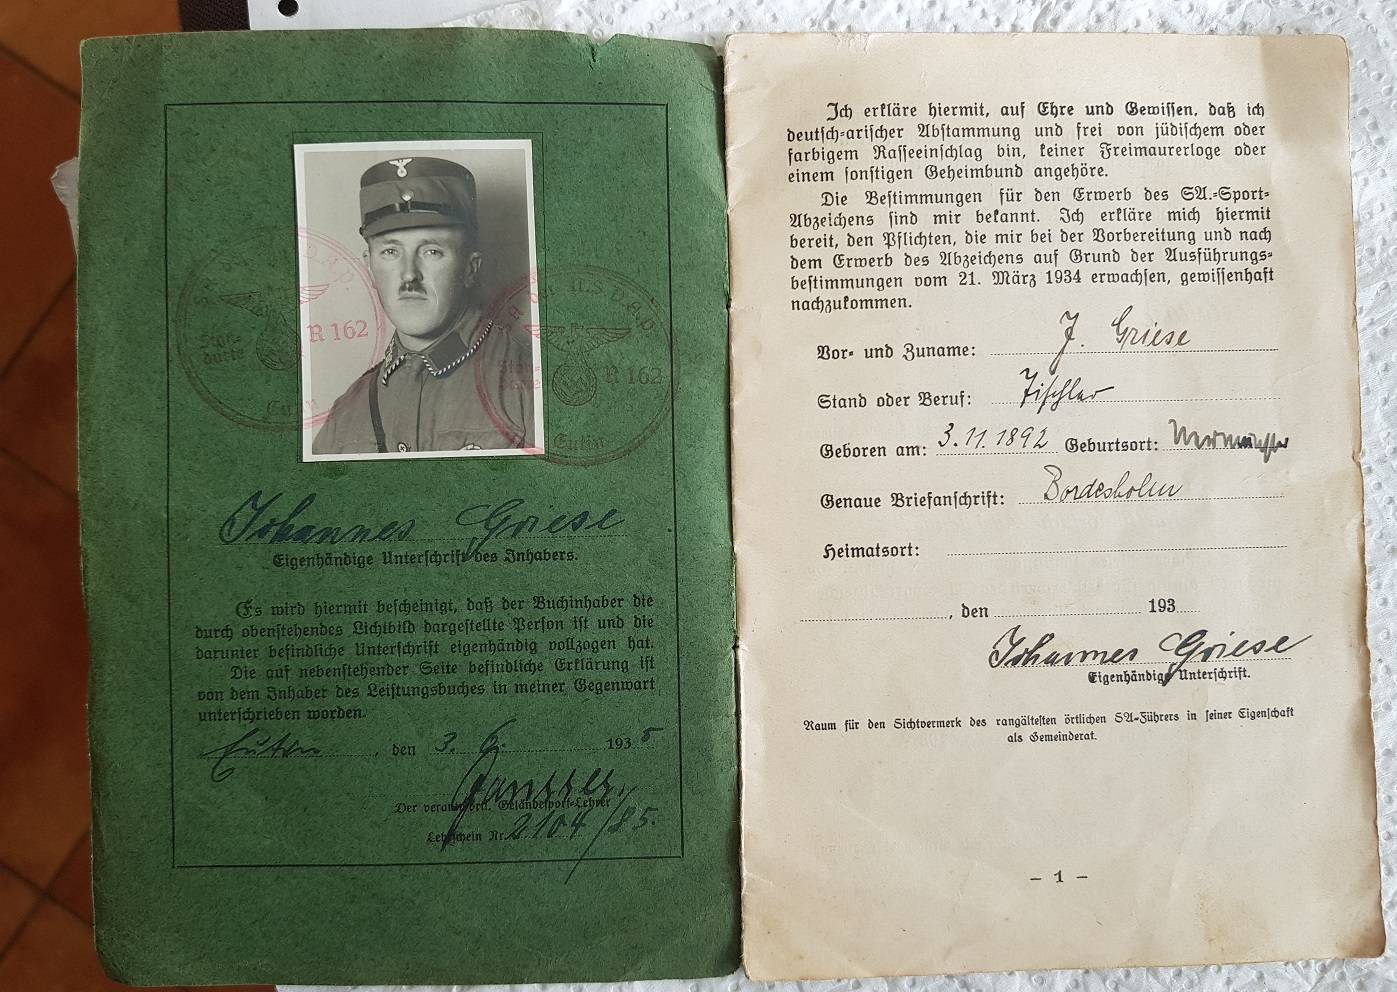 S.A. der N.S.D.A.P.
Stan-
darte
R 162
Eutin
S.A. der N.S.D.A.P.
Stan-
darte
R 162
Eutin
Johannes Griese
Eigenhändige Unterschrift des Inhabers.
Es wird hiermit bescheinigt, daß der Buchinhaber die
durch obenstehendes Lichtbild dargestellte Person ist und die
darunter befindliche Unterschrift eigenhändig vollzogen hat.
Die auf nebenstehender Seite befindliche Erklärung ist
von dem Inhaber des Leistungsbuches in meiner Gegenwart
unterschrieben worden.
Eutin, den 3. 6. 1935
Janssen
Der verantwortl. Geländesport-Lehrer
Lehrschein Nr. 2104/85.
Ich erkläre hiermit, auf Ehre und Gewissen, daß ich
deutsch-arischer Abstammung und frei von jüdischem oder
farbigem Rasseeinschlag bin, keiner Freimaurerloge oder
einem sonstigen Geheimbund angehöre.
Die Bestimmungen für den Erwerb des SA.-Sport-
Abzeichens sind mir bekannt. Ich erkläre mich hiermit
bereit, den Pflichten, die mir bei der Vorbereitung und nach
dem Erwerb des Abzeichens auf Grund der Ausführungs-
bestimmungen vom 21. März 1934 erwachsen, gewissenhaft
nachzukommen.
Vor- und Zuname: J. Griese
Stand oder Beruf: Tischler
Geboren am: 3.11.1892 Geburtsort:
Genaue Briefanschrift: Bordesholm
Heimatsort:
, den 193
Johannes Griese
Eigenhändige Unterschrift.
Raum für den Sichtvermerk des rangältesten örtlichen SA-Führers in seiner Eigenschaft
als Gemeinderat.
– 1 –